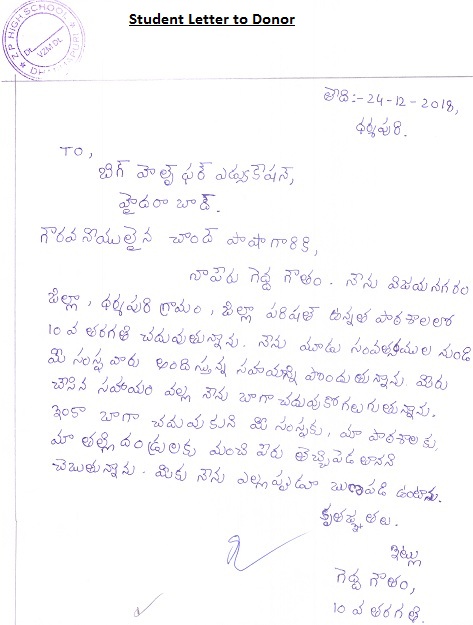 Student Letter to Donor
Z P HIGH SCHOOL
VZM Dt.
తేది:-24-12-2018,
ధర్మపురి.
TO,
బిగ్ హెల్ప్ ఫర్ ఎడ్యుకేషన్,
హైదరాబాద్.
గౌరవనీయులైన చాంద్ పాషాగారికి,
నాపేరు గెద్ద గౌతం. నేను విజయనగరం
జిల్లా, ధర్మపురి గ్రామం, జిల్లా పరిషత్ ఉన్నత పాఠశాలలో
10 వ తరగతి చదువుతున్నాను. నేను మూడు సంవత్సరముల నుండి
మీ సంస్థ వారు అందిస్తున్న సహయాన్ని పొందుతున్నాను. మీరు
చేసిన సహాయం వల్ల నేను బాగా చదువుకోగలుగుతున్నాను.
ఇంకా బాగా చదువుకుని మీ సంస్థకు, మా పాఠశాలకు,
మా తల్లిదండ్రులకు మంచి పేరు తెచ్చిపెడతానని
చెబుతున్నాను. మీకు నేను ఎల్లప్పుడూ ఋణపడి ఉంటాను.
కృతజ్ఞతలు.
ఇట్లు
గెద్ద గౌతం,
10 వ తరగతి.